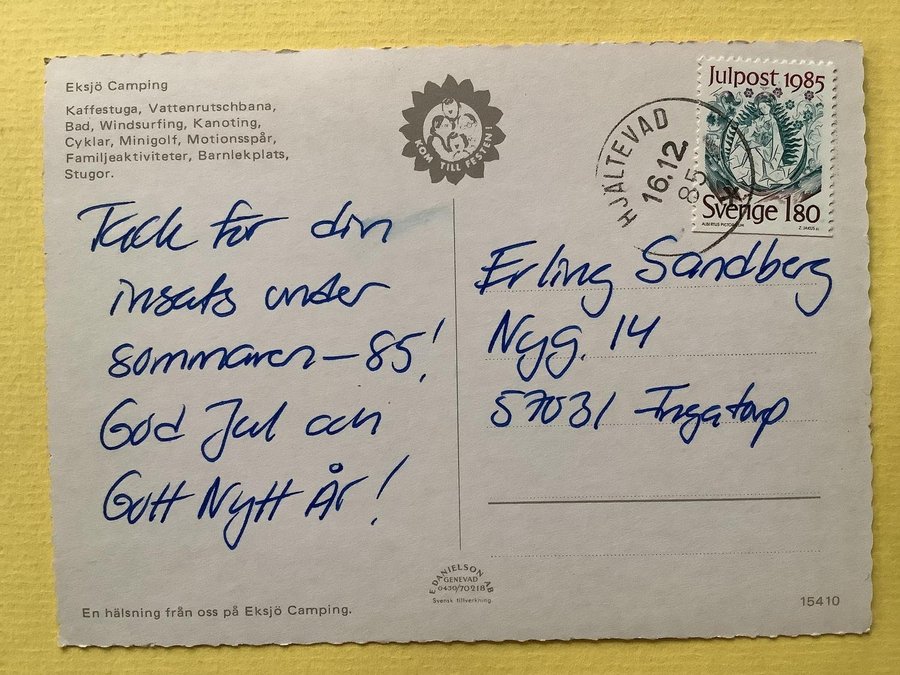 Eksjö Camping
Kaffestuga, Vattenrutschbana,
Bad, Windsurfing, Kanoting,
Cyklar, Minigolf, Motionsspår,
Familjeaktiviteter, Barnlekplats,
Stugor.
KOM TILL FESTEN!
HJÄLTEVAD
16.12
85
Julpost 1985
Sverige 180
ALBERTUS PICTOR
Z. JAKUS sc
Tack för din
insats under
sommaren-85!
God Jul och
Gott Nytt År!
Erling Sandberg
Nyg. 14
57031 Ingatorp
E. DANIELSON AB
GENEVAD
0430/70218
Svensk tillverkning.
En hälsning från oss på Eksjö Camping.
15410